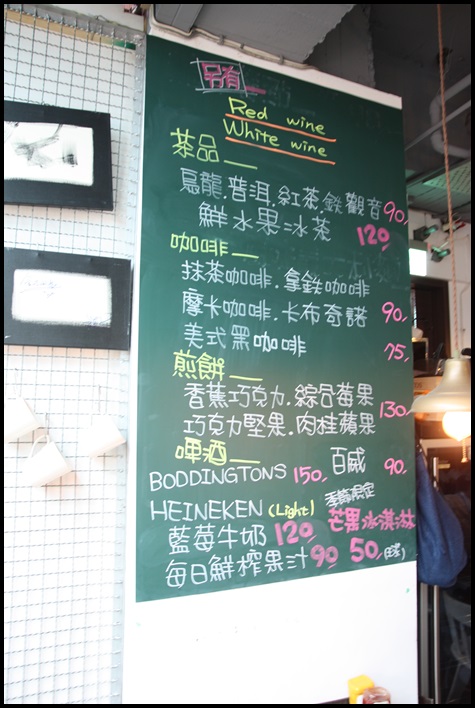 另有
Red wine
White wine
茶品
烏龍.普洱.紅茶.鉄觀音 90
鮮水果=冰茶 120
咖啡
抹茶咖啡.拿鉄咖啡
摩卡咖啡.卡布奇諾 90
美式黑咖啡 75
煎餅
香蕉巧克力.綜合莓果
巧克力堅果.肉桂蘋果 130
啤酒
BODDINGTONS 150 百威 90
HEINEKEN (Light) 季節限定
藍莓牛奶 120 芒果冰淇淋
每日鮮榨果汁 90 50